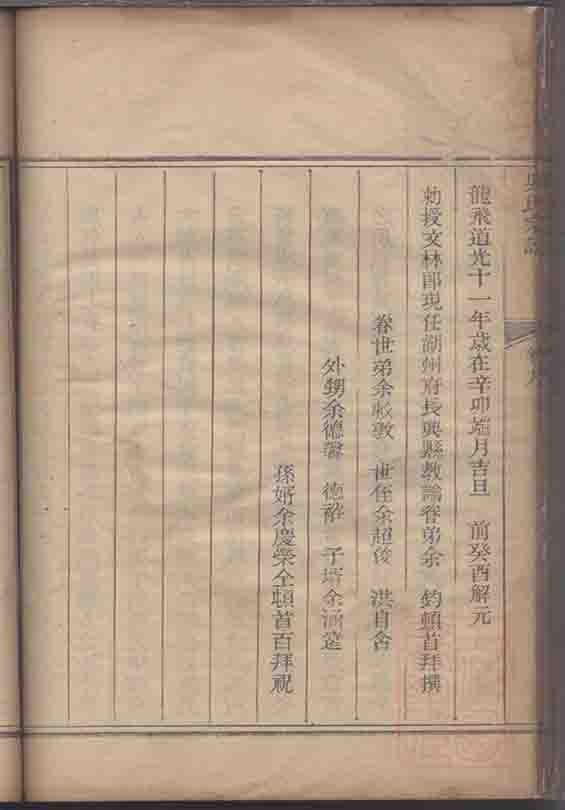 龍飛道光十一年歲在辛卯端月吉旦 前癸酉解元
勅授文林郎現任湖州府長興縣教諭眷弟余 鈞頓首拜撰
眷世弟余 敦 世侄余超俊 洪自含
外甥余德馨 德 子壻余涵
孫婿余慶榮仝頓首百拜祝